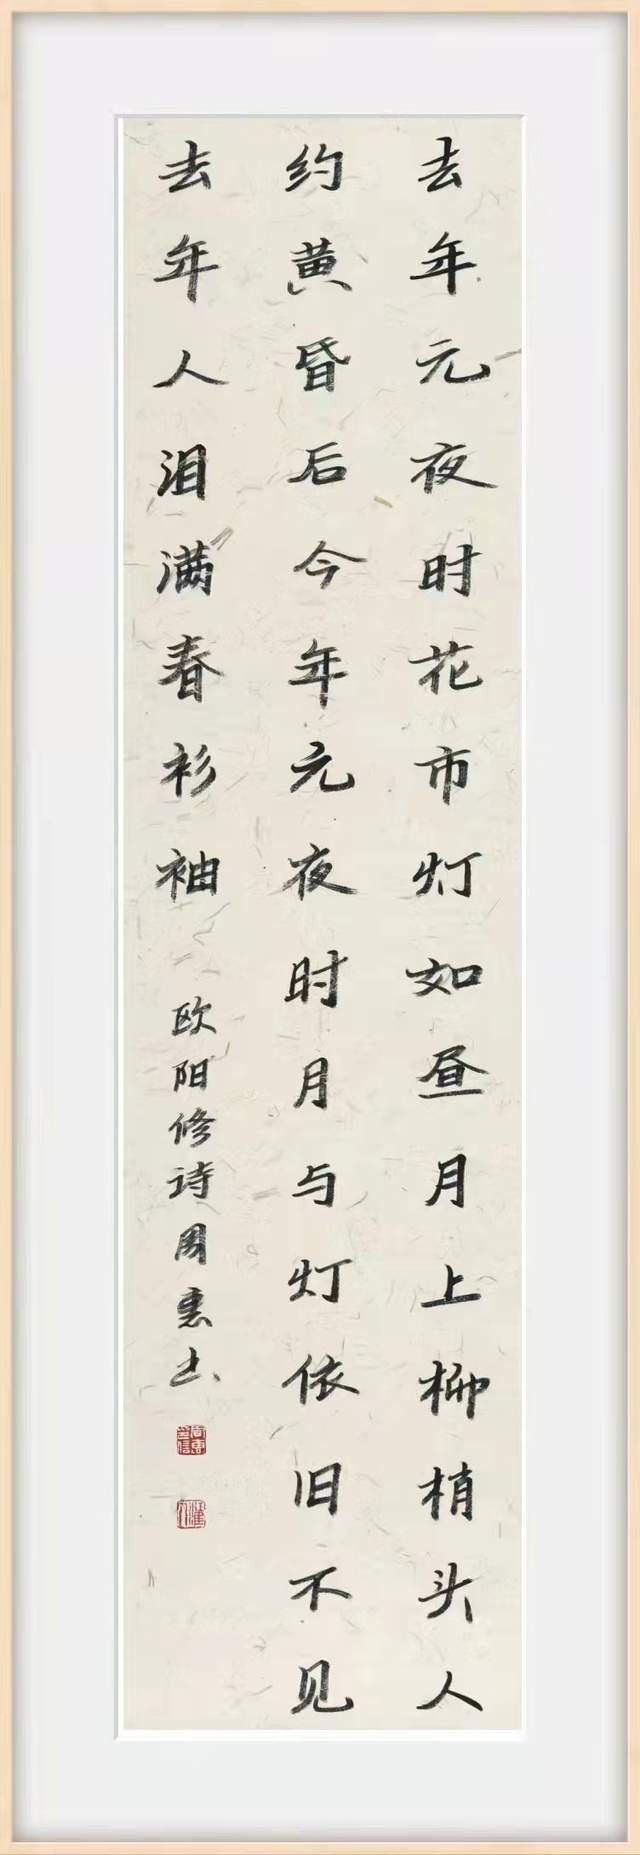 去年元夜时花市灯如昼月上柳梢头人
约黄昏后今年元夜时月与灯依旧不见
去年人泪满春衫袖
欧阳修诗周惠书